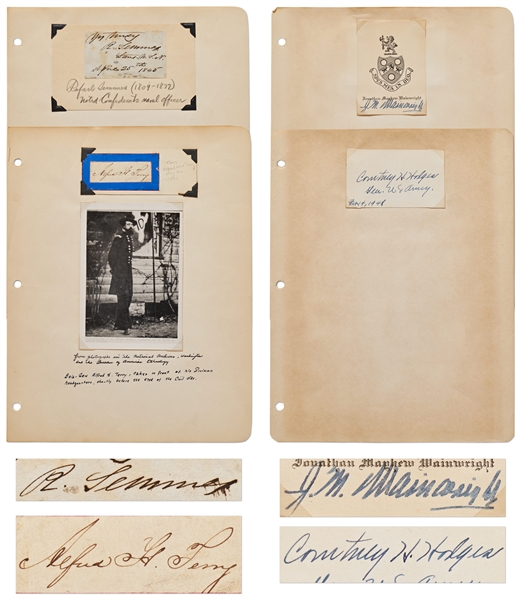 R. Semmes
April 25th
Rafael Semmes (1809-1877)
Noted Confederate naval officer
Alfred H. Terry
From photograph in the National Archives, Washington
and the Bureau of American Ethnology
Brig. Gen. Alfred H. Terry, taken in front of his Division
headquarters, shortly before the end of the Civil War.
Jonathan Mayhew Wainwright
J. M. Wainwright
Courtney H. Hodges
Gen. U.S. Army.
1948
R. Semmes
Alfred H. Terry
Jonathan Mayhew Wainwright
J. M. Wainwright
Courtney H. Hodges